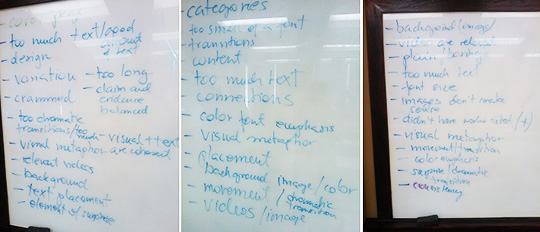 too much text/good
amount
of text
- design
- variation
- too long
- claim and
evidence
balanced
- crammed
- too dramatic
transitions/too
- visual + text
- visual metaphor are coherent
- relevant videos
- background
- text placement
- element of surprise
categories
too small of a font
transitions
content
- too much text
- connections
- color font emphasis
- visual metaphor
placement
background image/color
- movement / dramatic
transition
- videos/image
- background (image)
- video are relevant
- plain / boring
- too much text
- font size
- images don't make
sense
- didn't have works cited (4)
- visual metaphor
- movement/transition
- color emphasis
- surprise/dramatic
transition
- consistency